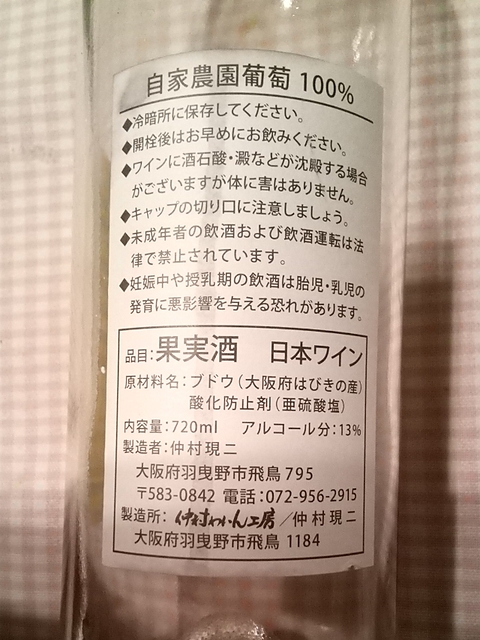 自家農園葡萄 100%
◆冷暗所に保存してください。
◆開栓後はお早めにお飲みください。
◆ワインに酒石酸・澱などが沈殿する場合
がございますが体に害はありません。
◆キャップの切り口に注意しましょう。
◆未成年者の飲酒および飲酒運転は法
律で禁止されています。
◆妊娠中や授乳期の飲酒は胎児・乳児の
発育に悪影響を与える恐れがあります。
品目:果実酒 日本ワイン
原材料名:ブドウ(大阪府はびきの産)
酸化防止剤(亜硫酸塩)
内容量:720ml アルコール分:13%
製造者:仲村現二
大阪府羽曳野市飛鳥795
〒583-0842 電話:072-956-2915
製造所:仲村わいん工房/仲村現二
大阪府羽曳野市飛鳥 1184